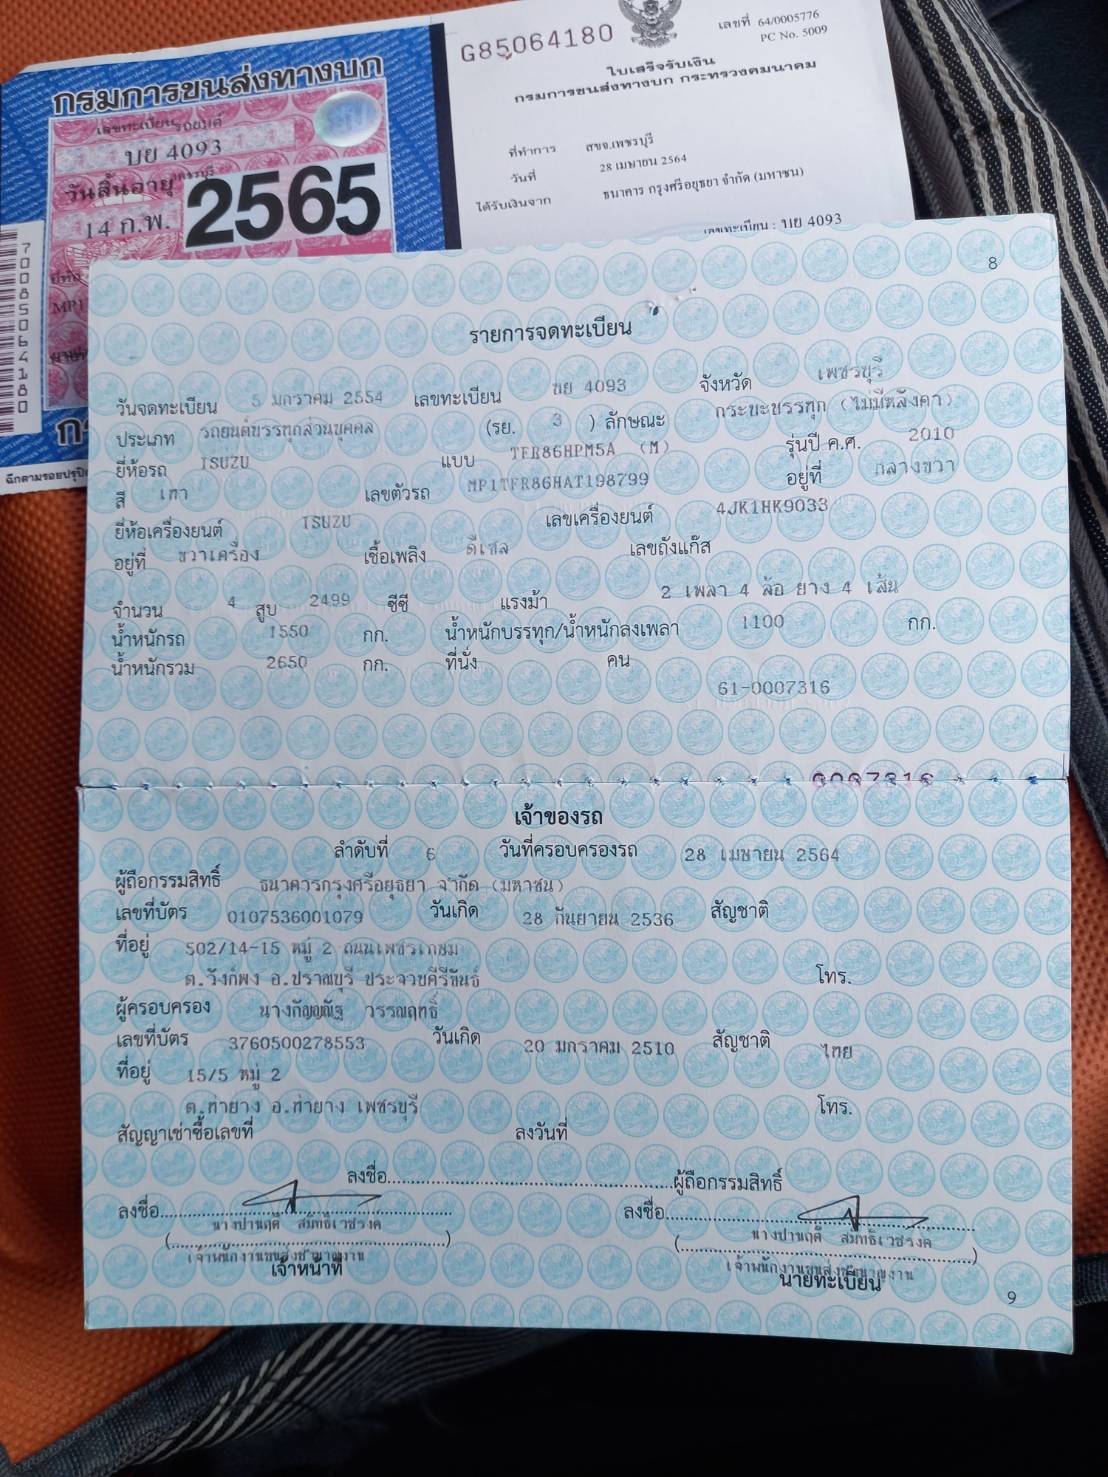 กรมการขนส่งทางบก
เลขทะเบียนรถยนต์
บย 4093
เพชรบุรี
วันสิ้นอายุ
14 ก.พ. 2565
70085064180
G85064180
เลขที่ 64/0005776
PC No. 5009
ใบเสร็จรับเงิน
กรมการขนส่งทางบก กระทรวงคมนาคม
ที่ทำการ สขจ.เพชรบุรี
วันที่ 28 เมษายน 2564
ได้รับเงินจาก ธนาคาร กรุงศรีอยุธยา จำกัด (มหาชน)
เลขทะเบียน : บย 4093
8
รายการจดทะเบียน
วันจดทะเบียน 5 มกราคม 2554 เลขทะเบียน บย 4093 จังหวัด เพชรบุรี
ประเภท รถยนต์บรรทุกส่วนบุคคล (รย. 3 ) ลักษณะ กระบะบรรทุก (ไม่มีหลังคา)
ยี่ห้อรถ ISUZU แบบ TFR86HPM5A (M) รุ่นปี ค.ศ. 2010
สี เทา เลขตัวรถ MP1TFR86HAT198799 อยู่ที่ กลางขวา
ยี่ห้อเครื่องยนต์ ISUZU เลขเครื่องยนต์ 4JK1HK9033
อยู่ที่ ขวาเครื่อง เชื้อเพลิง ดีเซล เลขถังแก๊ส
จำนวน 4 สูบ 2499 ซีซี แรงม้า 2 เพลา 4 ล้อ ยาง 4 เส้น
น้ำหนักรถ 1550 กก. น้ำหนักบรรทุก/น้ำหนักลงเพลา 1100 กก.
น้ำหนักรวม 2650 กก. ที่นั่ง คน
61-0007316
เจ้าของรถ
ลำดับที่ 6 วันที่ครอบครองรถ 28 เมษายน 2564
ผู้ถือกรรมสิทธิ์ ธนาคารกรุงศรีอยุธยา จำกัด (มหาชน)
เลขที่บัตร 0107536001079 วันเกิด 28 กันยายน 2536 สัญชาติ
ที่อยู่ 502/14-15 หมู่ 2 ถนนเพชรเกษม
ต.วังก์พง อ.ปราณบุรี ประจวบคีรีขันธ์ โทร.
ผู้ครอบครอง นางกัญญณัฐ วรรณฤทธิ์
เลขที่บัตร 3760500278553 วันเกิด 20 มกราคม 2510 สัญชาติ ไทย
ที่อยู่ 15/5 หมู่ 2
ต.ท่ายาง อ.ท่ายาง เพชรบุรี โทร.
สัญญาเช่าซื้อเลขที่ ลงวันที่
ลงชื่อ ผู้ถือกรรมสิทธิ์
ลงชื่อ ลงชื่อ
นางปานฤดี สมัทธิ์เวชรงค นางปานฤดี สมัทธิ์เวชรงค
เจ้าพนักงานขนส่งชำนาญงาน เจ้าพนักงานขนส่งชำนาญงาน
เจ้าหน้าที่ นายทะเบียน
9